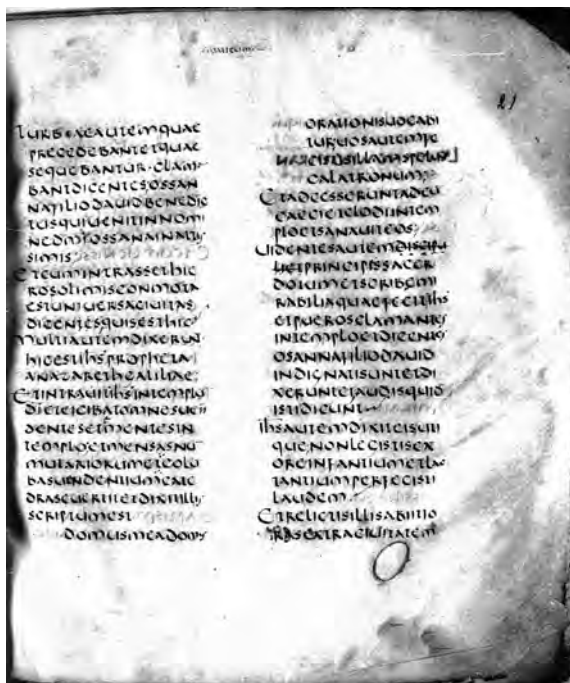 21
TURBAEAUTEMQUAE
PRECEDEBANTETQUAE
SEQUEBANTUR·CLAM
BANTDICENTES;OSSAN
NAFILIODAUIDBENEDIC
TUSQUIUENITINNOMI
NEDMI·OSSANAINALTIS
SIMIS
ETCUMINTRASSETHIE
ROSOLIMISCONMOTA
ESTUNIUERSACIUITAS
DICENTESQUISESTHIC
MULTIAUTEMDIXERUN
HICESTIHSPROPHETA
ANAZARETHGALILAE;
ETINTRAUITIHSINTEMPLU
DIETEICIEBATOMNESUEN
DENTESETEMENTESIN
TEMPLO;ETMENSASNU
MULARIORUMETCOLU
BASUENDENTIUMCATE
DRASEUERTITETDIXITILLIS
SCRIPTUMEST
DOMUSMEADOMUS
ORATIONISUOCABI
TURUOSAUTEMFE
CISTISILLAMSPELUN
CALATRONUM;
ETADCESSERUNTADEU
CAECIETCLODIINTEM
PLOETSANAUITEOS;
UIDENTESAUTEM
PRINCIPESSACER
DOTUMETSCRIBEMI
RABILIAQUAEFECITIHS
ETPUEROSCLAMANTES
INTEMPLOETDICENTES
OSANNAFILIODAUID
INDIGNATISUNTETDI
XERUNTEIAUDISQUID
ISTIDICUNT
IHSAUTEMDIXITEISUTI
QUE;NONLEGISTISEX
OREINFANTIUMETLAC
TANTIUMPERFECISTI
LAUDEM
ETRELICTISILLISABIITFO
RASEXTRACIUITATEM